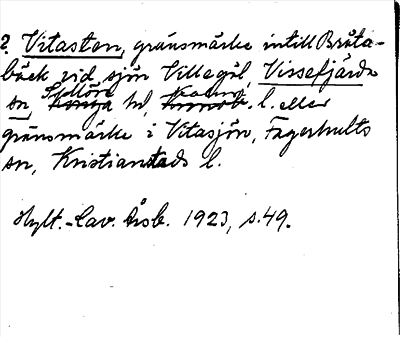 ?. Vitasten, gränsmärke intill Bråta-
bäck vid sjön Villegöl, Vissefjärda
sn, Södra hd, l. eller
gränsmärke i Vitasjön, Fagerhults
sn, Kristianstads l.
Hylt.-Cav. årsb. 1923, s. 49.